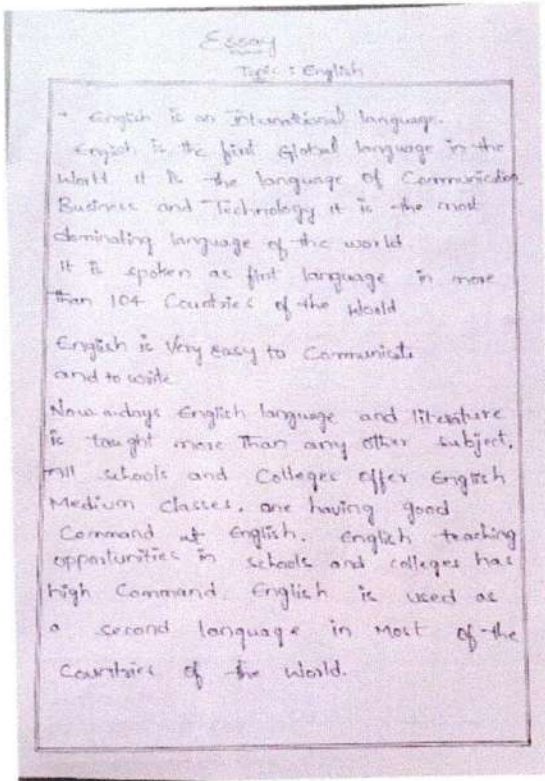 Essay
Topic : English
English is an International language.
English is the first Global language in the
World. It is the language of Communication
Business and Technology it is the most
dominating language of the world
It is spoken as first language in more
than 104 Countries of the World
English is Very easy to Communicate
and to write
Now a days English language and literature
is taught more than any other subject.
All schools and Colleges offer English
Medium Classes. one having good
Command at English. English teaching
opportunities in schools and colleges has
high Command. English is used as
a second language in Most of the
Countries of the World.